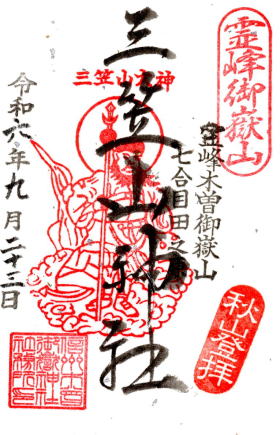 霊峰御嶽山
霊峰木曽御嶽山
七合目田之原
三笠山大神
三笠山神社
令和六年九月二十三日
秋山登拝